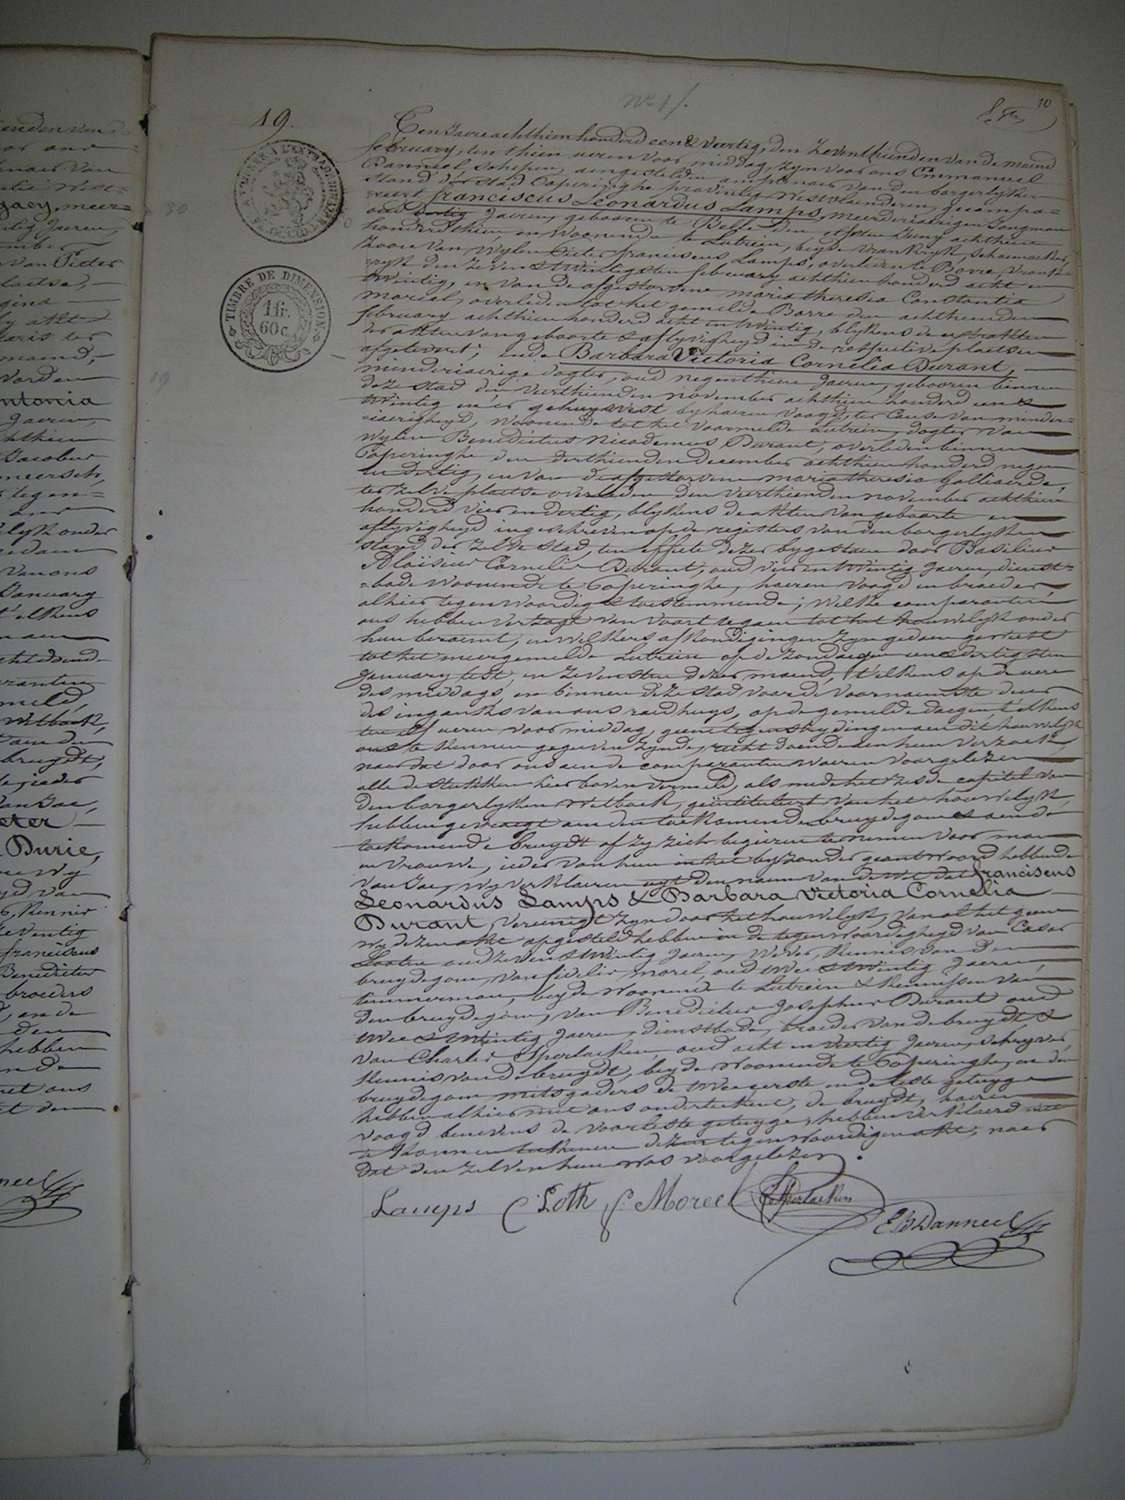 N° 1/.
10
19.
Ten Jaere achthien honderd een & veertig, den zeventhienden van de maend
february, ten thien ueren voor middag, zyn voor ons Emmanuel
Banneel schepen, aengestelden amptenaer van den borgerlyken
stand der stad Poperinghe provintie Westvlaenderen, gecompa-
reert franciscus Leonardus Lamps, meerderjarigen jongman
oud dertig Jaeren, gebooren te Belle den Juny achthien
honderd thien en Woonende te Lutrein, beyde Vrankryk, schoenmaker,
zoone van Wylen Pieter franciscus Lamps, overleden te Borre, Vrank-
ryk den zeven & twintigsten february achthien honderd acht en
twintig, en van de afgestorvene maria theresia Constantia
Moreel, overleden tot het gemelde Borre den achthienden
february achthien honderd acht en twintig, blykens de extrakten
der akten van geboorte & aflyvigheyd in de respective plaetsen
afgelevert; ende Barbara Victoria Cornelia Durant,
minderjaerige dogter, oud negenthien Jaeren, gebooren binnen
deze stad den Veerthienden november achthien honderd een &
twintig en er gehuysvest by haeren Voogd ter Cause van minder-
jaerigheyd, Woonende tot het Voormelde Lutrein, dogter van
Wylen Benedictus Nicodemus Durant, overleden binnen
Poperinghe den derthienden december achthien honderd negen
en dertig, en van de afgestorvene maria theresia
ter zelve plaetse overleden den Veerthienden november achthien
honderd vier en dertig, blykens de akten van geboorte en
aflyvigheyd ingeschreven op de registers van den borgerlyken
stand der zelve stad, ten effekte dezer bygestaen door Basilius
Aloïsius Cornelis Durant, oud vier en twintig Jaeren, dienst-
bode Woonende te Poperinghe, haeren Voogd en broeder
alhier tegenwoordig & toestemmende; Welke comparanten
ons hebben verzogt van Voort te gaen tot het houwelyk onder
hun beraemt, en Welkers afkondigingen zyn gedaen geweest
tot het meergemelde Lutrein op de zondagen een & dertigsten
January lest, en zevensten dezer maend, t'elkens op de uere
des middags, en binnen deze stad voor de Voornaemste deure
des ingangs van ons raedhuys, op de gemelde daegen t'elkens
ten elf ueren voor middag, geene tegenstrydingen aen dit houwelyk
ons te kennen gegeven zynde, recht doende aen hun Verzoek
naer dat door ons aen de comparanten Waeren voorgelezen
alle de stukken hier boven vermeld, als mede het zesde capitel van
den borgerlyken Wetboek, geïntituleert van het houwelyk,
hebben gevraegt aen den toekomenden bruydegom en aen de
toekomende bruydt of zy zich begeeren te nemen voor man
en Vrouwe, ieder van hun in het byzonder geantwoord hebbende
Van Jae, Wy verklaeren uyt den naem van de Wet dat franciscus
Leonardus Lamps & Barbara Victoria Cornelia
Durant, Vereenigt zyn door het houwelyk, van al het geene
Wy dezen akt opgesteld hebben in de tegenwoordigheyd van Cesar
Lootie oud zeven & twintig Jaeren, Wever, Kennis van den
bruydegom, van fidelis morel, oud twee & twintig Jaeren,
timmerman, beyde Woonende te Lutrein & Kennissen van
den bruydegom, van Benedictus Josephus Durant oud
twee & twintig Jaeren, dienstbode, broeder van de bruydt, &
van Charles Sperlaeken, oud acht en veertig Jaeren, schryver,
Kennis van de bruydt, beyde Woonende te Poperinghe, en den
bruydegom mitsgaders de twee eerste en de leste getuyge
hebben alhier met ons onderteekent, de bruydt, haeren
voogd benevens de voorleste getuyge hebben verklaerd niet
te konnen teekenen dezen tegenwoordigen akt, naer
dat den zelven hun was voorgelezen.
Lamps C Loth f Moreel C Sperlaeken
E B Banneel
TIMBRE DE DIMENSION
1 fr.
60 c.